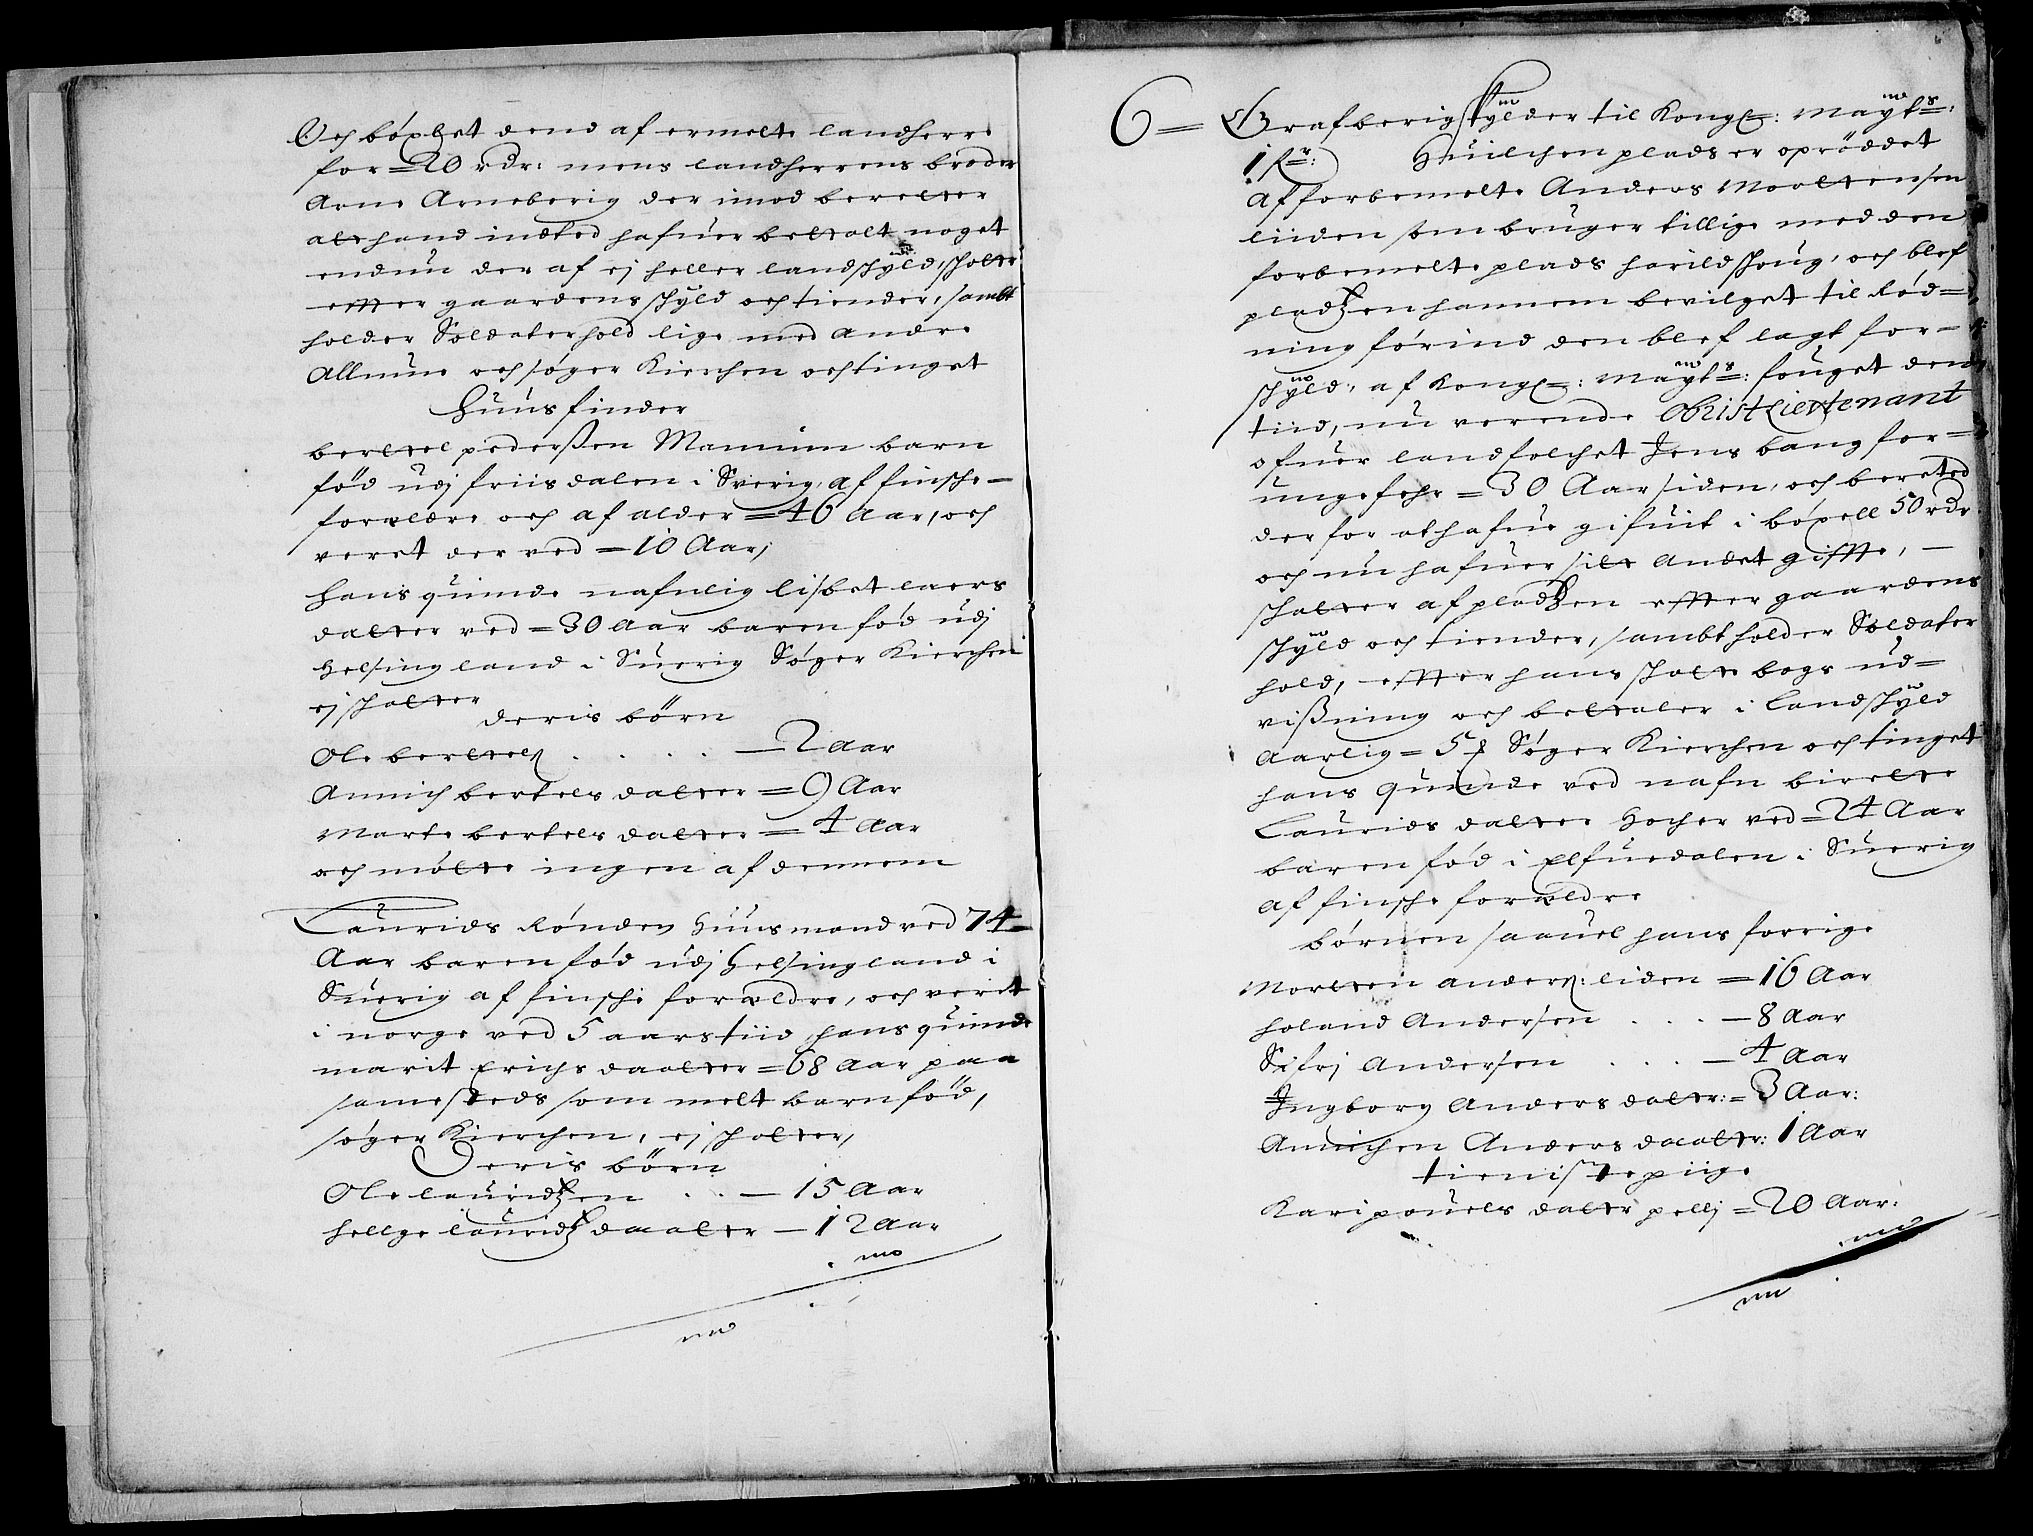 Och böxlet dend af ermelte landherre
for = 20 rdr: mens landherrens broder
Arne Arneberig der imod beretter
at hand indted hafuer betalt noget
endnu der af ej heller landschyld, schatter
effter gaardens schyld och tiender, sambt
holder Soldaterhold lige med andre
Allmue och søger Kierchen och tinget
Huusfinder
bertel pederßen Mamuim barn
fød udj friisdalen i Sverig, af finsche
forældre och af alder = 46 Aar, och
veret der ved = 10 Aar,
Hans quinde nafnlig lisbet laers
datter ved = 30 Aar baren fød udj
Helsingland i Suerig Søger Kierchen
ej schatter
deris börn
Ole bertels . . . . — 2 Aar
Annich bertels datter = 9 Aar
Marte bertels datter = 4 Aar
och mötte ingen af dennem
Laurids Rönden Huusmand ved 74
Aar baren fød udj Helsingland i
Suerig af finsche forældre, och verit
i norge ved 5 aars tiid hans quinde
marit Erichs daatter = 68 Aar paa
samesteds som melt barnfød,
søger Kierchen, ej schatter,
Deris börn
Ole lauridzen . . — 15 Aar
hellge lauridz daatter — 12 Aar
6 = Grafberig schylder til Kongl: Mayts:
1 fr: Huilchen plads er oprøddet
af forbemelte Anders Mortensen
liiden som bruger tillige med den
forbemelte plads harildschoug, och blef
pladzen hannem bevilget til Rød=
ning førind den blef lagt for
schyld, af Kongl: Mayts: fouget den
tiid, nu verende Obristlieutenant
ofuer landfolchet Jens bang for
ungefehr = 30 Aar siden, och beretted
derfor at hafue gifuit i böxell 50 rdr
och nu hafuer ilt andet gifft, —
schatter af pladzen effter gaardens
schyld och tiender, sambt holder Soldater
hold, effter hans schatte bogs ud=
vißning och bettaler i Landschyld
Aarlig = 5 ₰ Søger Kierchen och tinget
hans Quinde ved nafn birette
Laurids datter Hocher ved = 24 Aar
baren fød i Elfuedalen i Suerig
af finsche forældre
börnen saauel hans forrige
Morten anders: liden = 16 Aar
holand Andersen . . . — 8 Aar
Sifrj Andersen . . . . — 4 Aar
Ingborg Anders datter: = 3 Aar:
Annichen Anders daatter: 1 Aar
tieniste piige
Kari pouels datter pellj = 20 Aar: